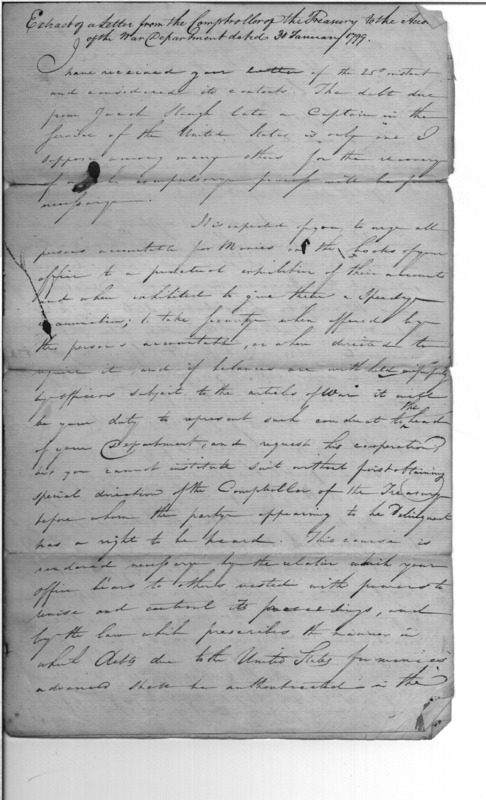 Extract of a Letter from the Comptroller of the Treasury to the Acco
of the War Department dated 30 January 1799.
I have received your letter of the 25th instant
and considered its contents. The debt due
from Jacob Slough late a Captain in the
Service of the United States is only one I
suppose among many others for the recovery
of which compulsory process will be found
necessary.
It is expected of you to urge all
persons accountable for Monies on the books of your
office to a punctual exhibition of their accounts
and when exhibited to give them a speedy
examination; to take security when offered by
the persons accountable, or when directed to
require it, and if balances are withheld
by officers subject to the articles of war it will
be your duty to represent such conduct to the head
of your Department, and request his cooperation,
as you cannot institute suit without first obtaining
special direction of the Comptroller of the Treasury
before whom the party appearing to be Delinquent
has a right to be heard. This course is
rendered necessary by the relation which your
office bears to others vested with powers to
revise and control its proceedings, and
by the law which prescribes the manner in
which debts due to the United States for monies
advanced shall be authenticated in the